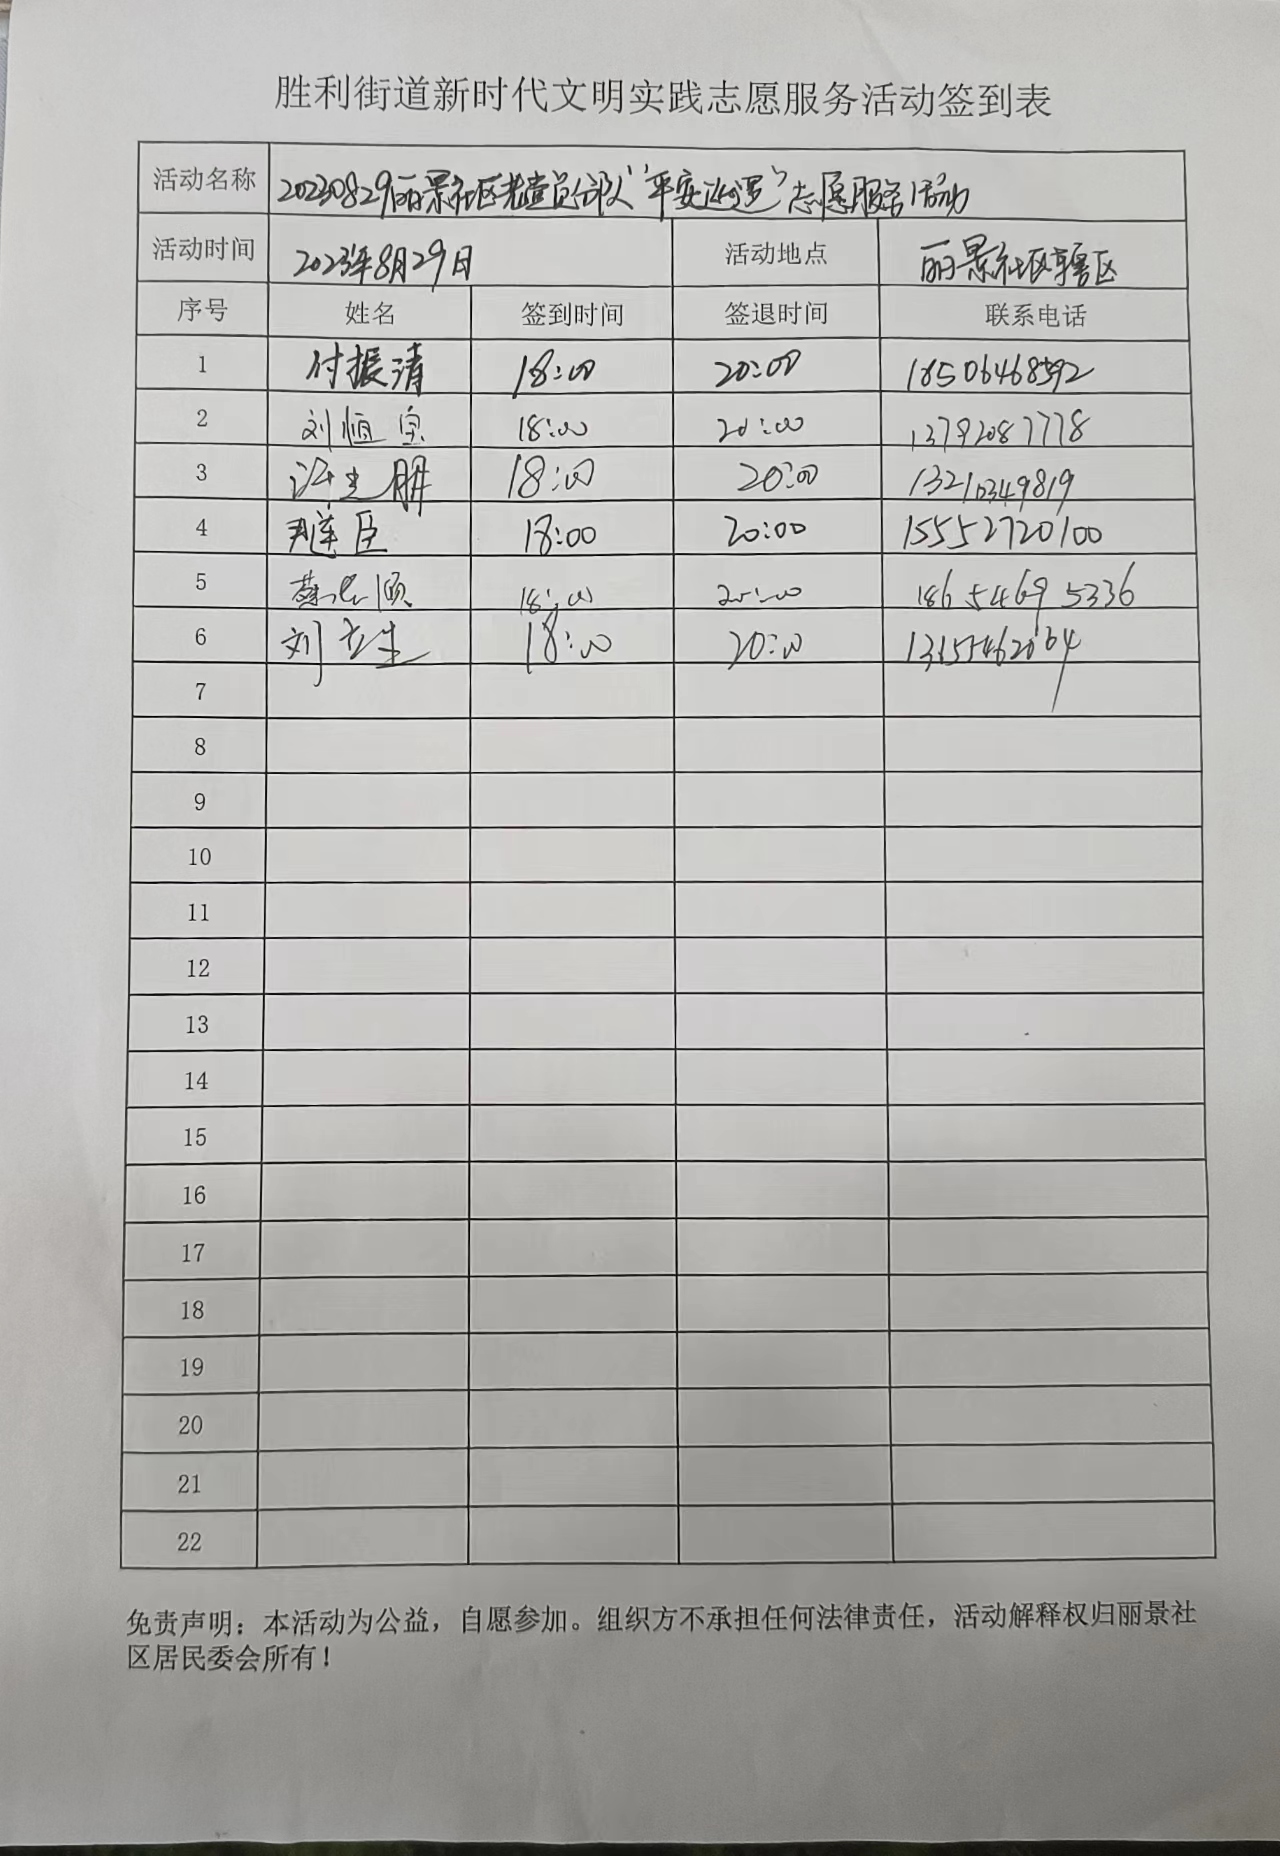 胜利街道新时代文明实践志愿服务活动签到表
活动名称 20230829丽景社区老党员部队“平安巡逻”志愿服务活动
活动时间 2023年8月29日 活动地点 丽景社区辖区
序号 姓名 签到时间 签退时间 联系电话
1 付振清 18:00 20:00 18506468592
2 刘恒宝 18:00 20:00 13792087778
3 18:00 20:00 13210349819
4 18:00 20:00 15552720100
5 18:00 20:00 18654695336
6 刘立生 18:00 20:00
7
8
9
10
11
12
13
14
15
16
17
18
19
20
21
22
免责声明：本活动为公益，自愿参加。组织方不承担任何法律责任，活动解释权归丽景社
区居民委会所有！